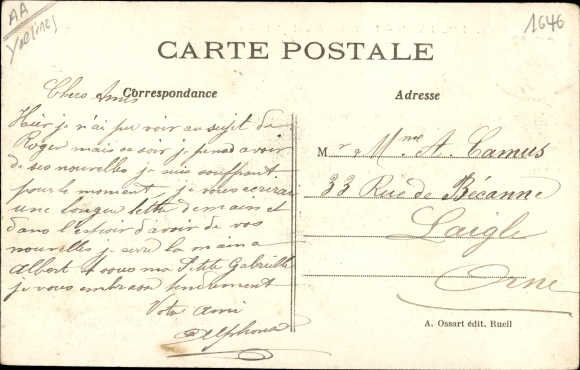 AA
Yvelines
1646
CARTE POSTALE
Correspondance
Adresse
Chers Amis
Hier je n'ai pu voir au sujet de
Roger mais ce soir je pense avoir
de ses nouvelles je suis souffrant
pour le moment, je vous ecrirai
une longue lettre demain et
dans l'espoir d'avoir de vos
nouvelles je serre la main a
Albert et vous ma Petite Gabrielle
je vous embrasse tendrement
Votre ami
Alphonse
Mr & Mme A. Camus
33 Rue de Bécanne
Laigle
Orne
A. Ossart édit. Rueil